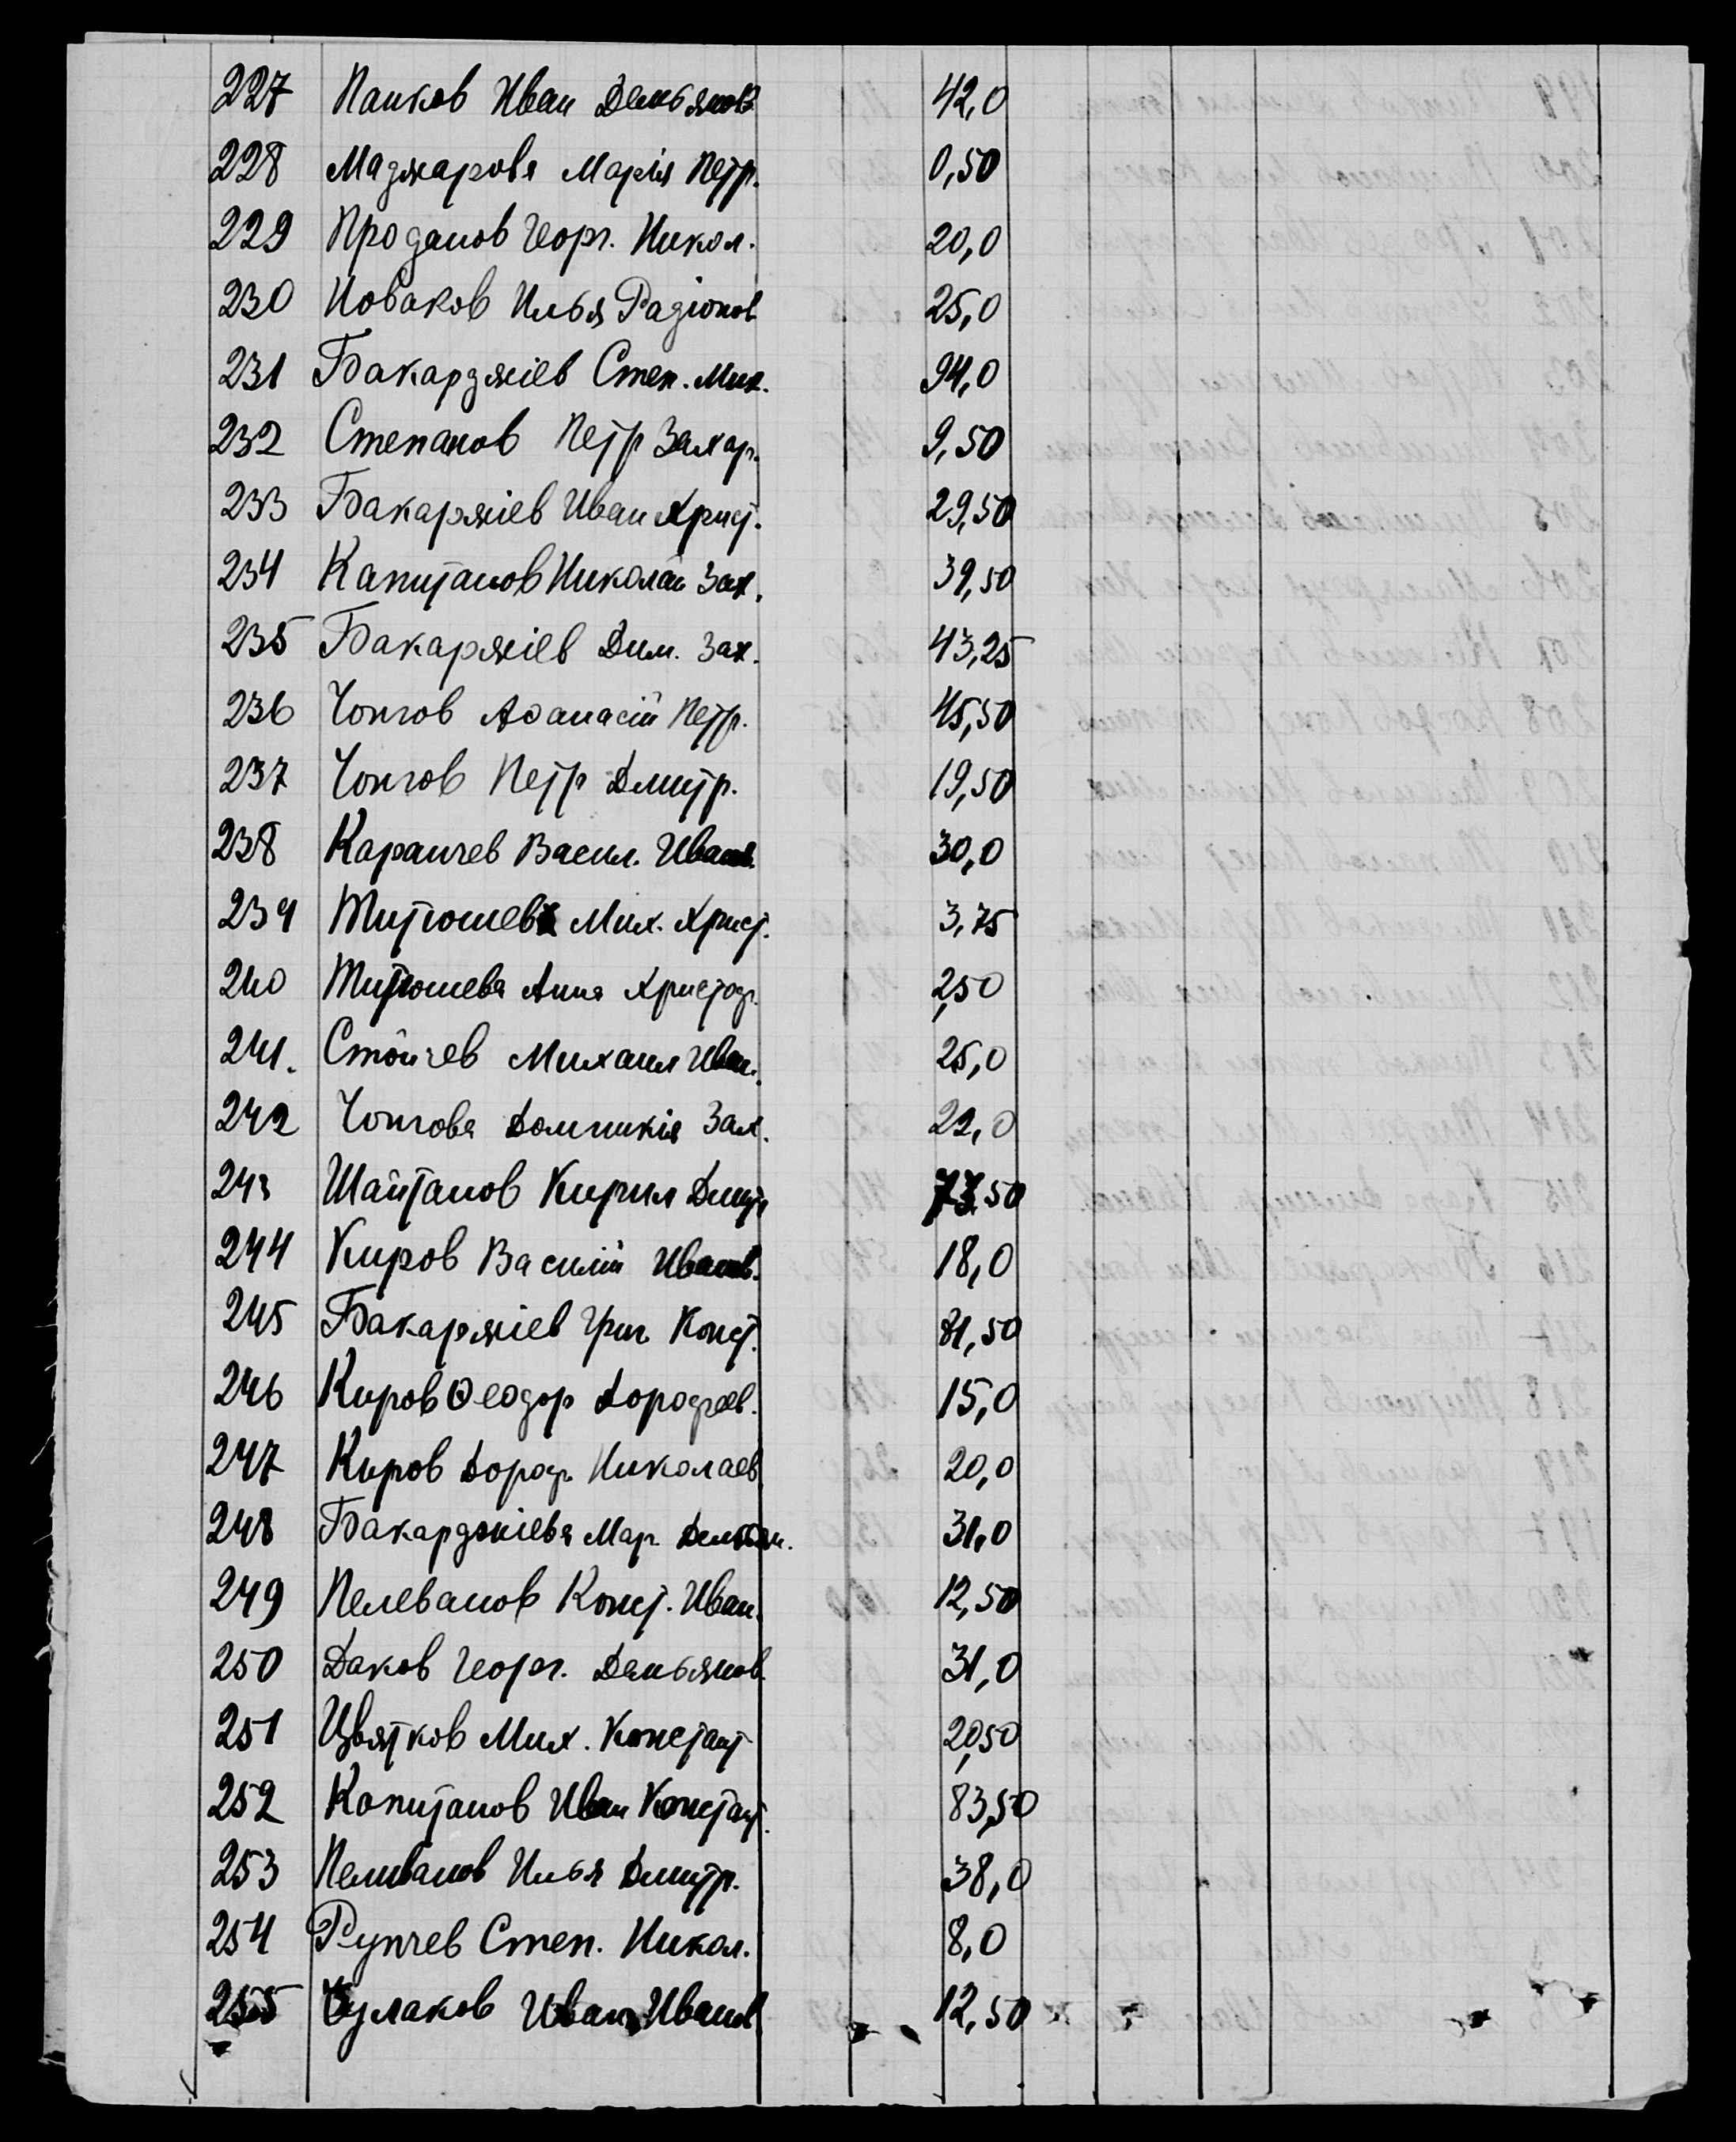 227 Панков Иван Демьянов 42,0
228 Маджарова Марія Петр. 0,50
229 Проданов Георг. Никол. 20,0
230 Новаков Илья Радіонов 25,0
231 Бакарджіев Степ. Мих. 94,0
232 Степанов Петр Захар. 9,50
233 Бакаржіев Иван Христ. 29,50
234 Капитанов Николай Зах. 39,50
235 Бакаржіев Дим. Зах. 43,25
236 Чонгов Аѳанасій Петр. 45,50
237 Чонгов Петр Дмитр. 19,50
238 Каранчев Васил. Иванов. 30,0
239 Митюшев Мих. Христ. 3,75
240 Митюшева Анна Христоф. 2,50
241. Стойчев Михаил Иван. 25,0
242 Чонгова Домникія Зах. 22,0
243 Шайтанов Кирил Дмитр 73,50
244 Киров Василій Иванов. 18,0
245 Бакаржіев Григ Конст. 81,50
246 Киров Ѳеодор Дорофеев. 15,0
247 Киров Дороф. Николаев 20,0
248 Бакарджіева Мар. Демьян. 31,0
249 Пелеванов Конст. Иван. 12,50
250 Даков Георг. Демьянов. 31,0
251 Цвятков Мих. Констант 20,50
252 Капитанов Иван Констант. 83,50
253 Пеливанов Илья Дмитр. 38,0
254 Рупчев Степ. Никол. 8,0
255 Чулаков Иван Иванов 12,50